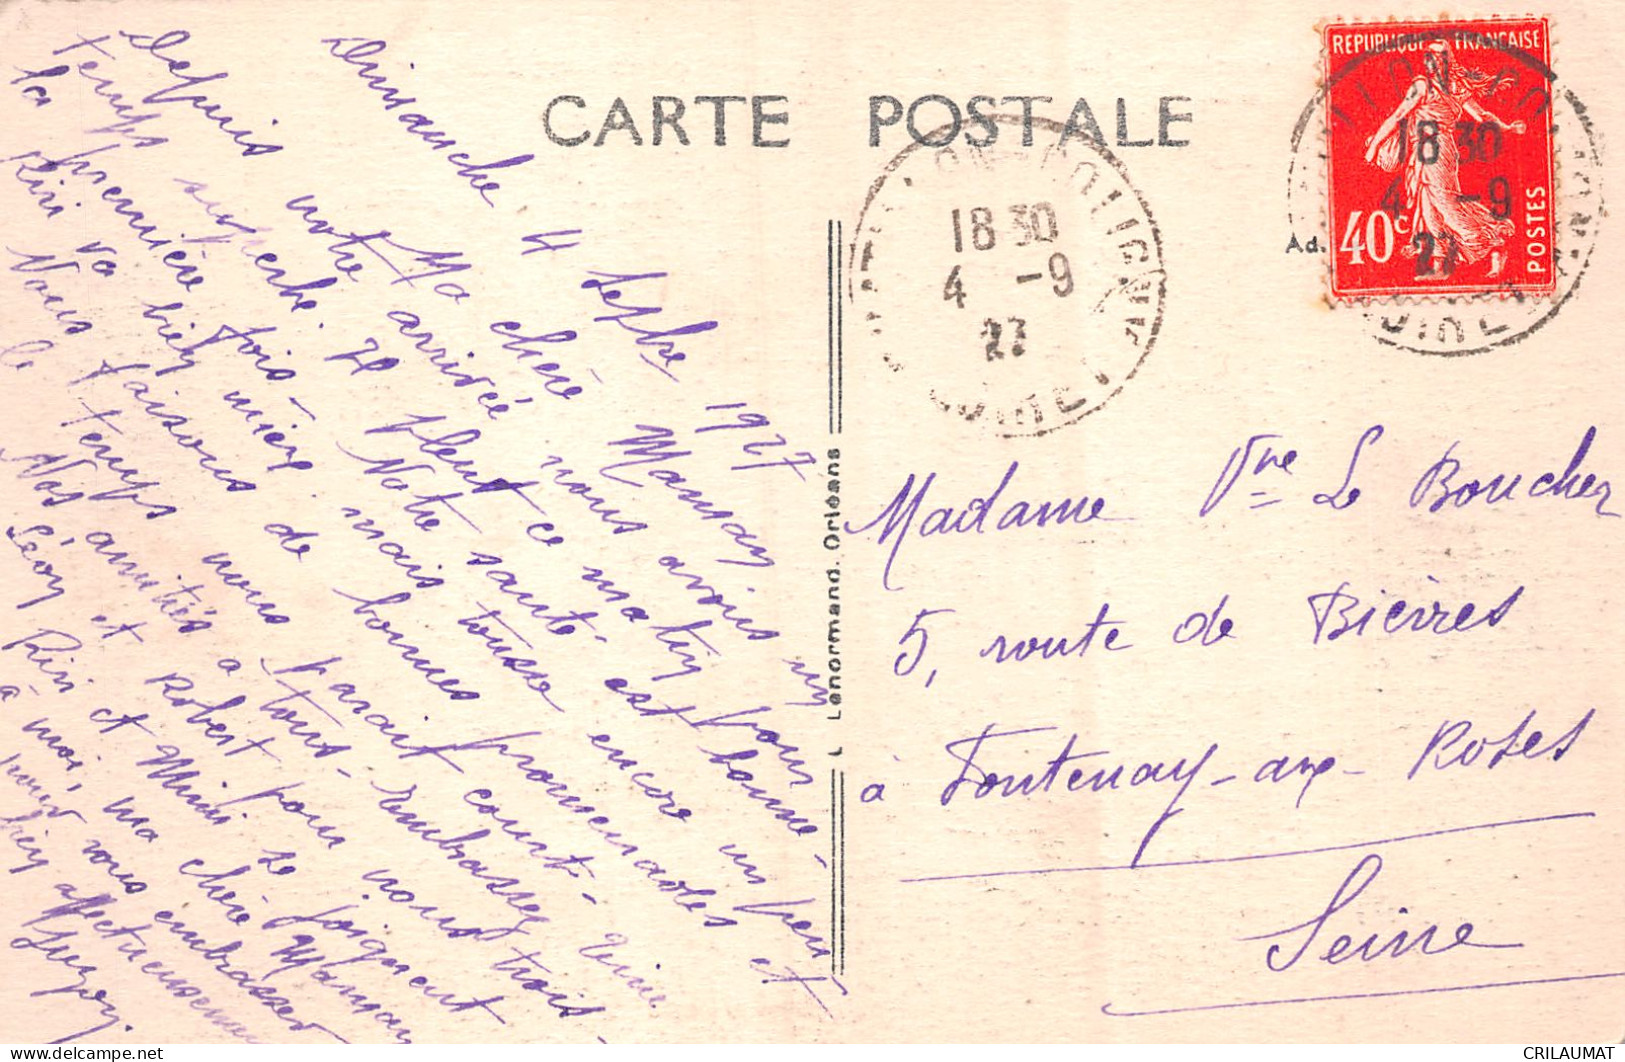 CARTE POSTALE
REPUBLIQUE FRANÇAISE
40c
POSTES
18 30
4 -9
27
18 30
4 -9
27
Ad.
L Lenormand. Orléans
Dimanche 4 Septbre 1927
Ma chère Maman
Depuis notre arrivée nous avons un
temps superbe. Il pleut ce matin pour
la première fois. Notre santé est bonne.
Riri va bien mieux mais tousse encore un peu
Nous faisons de bonnes promenades et
le temps nous parait court.
Nos amitiés à tous. Embrassez Mimie
Léon et Robert pour nous trois.
Riri et Mimi se joignent
à moi, ma chère Maman
pour vous embrasser
bien affectueusement
Suzon.
Madame Vve Le Boucher
5, route de Bièvres
à Fontenay-aux-Roses
Seine
delcampe.net
CRILAUMAT